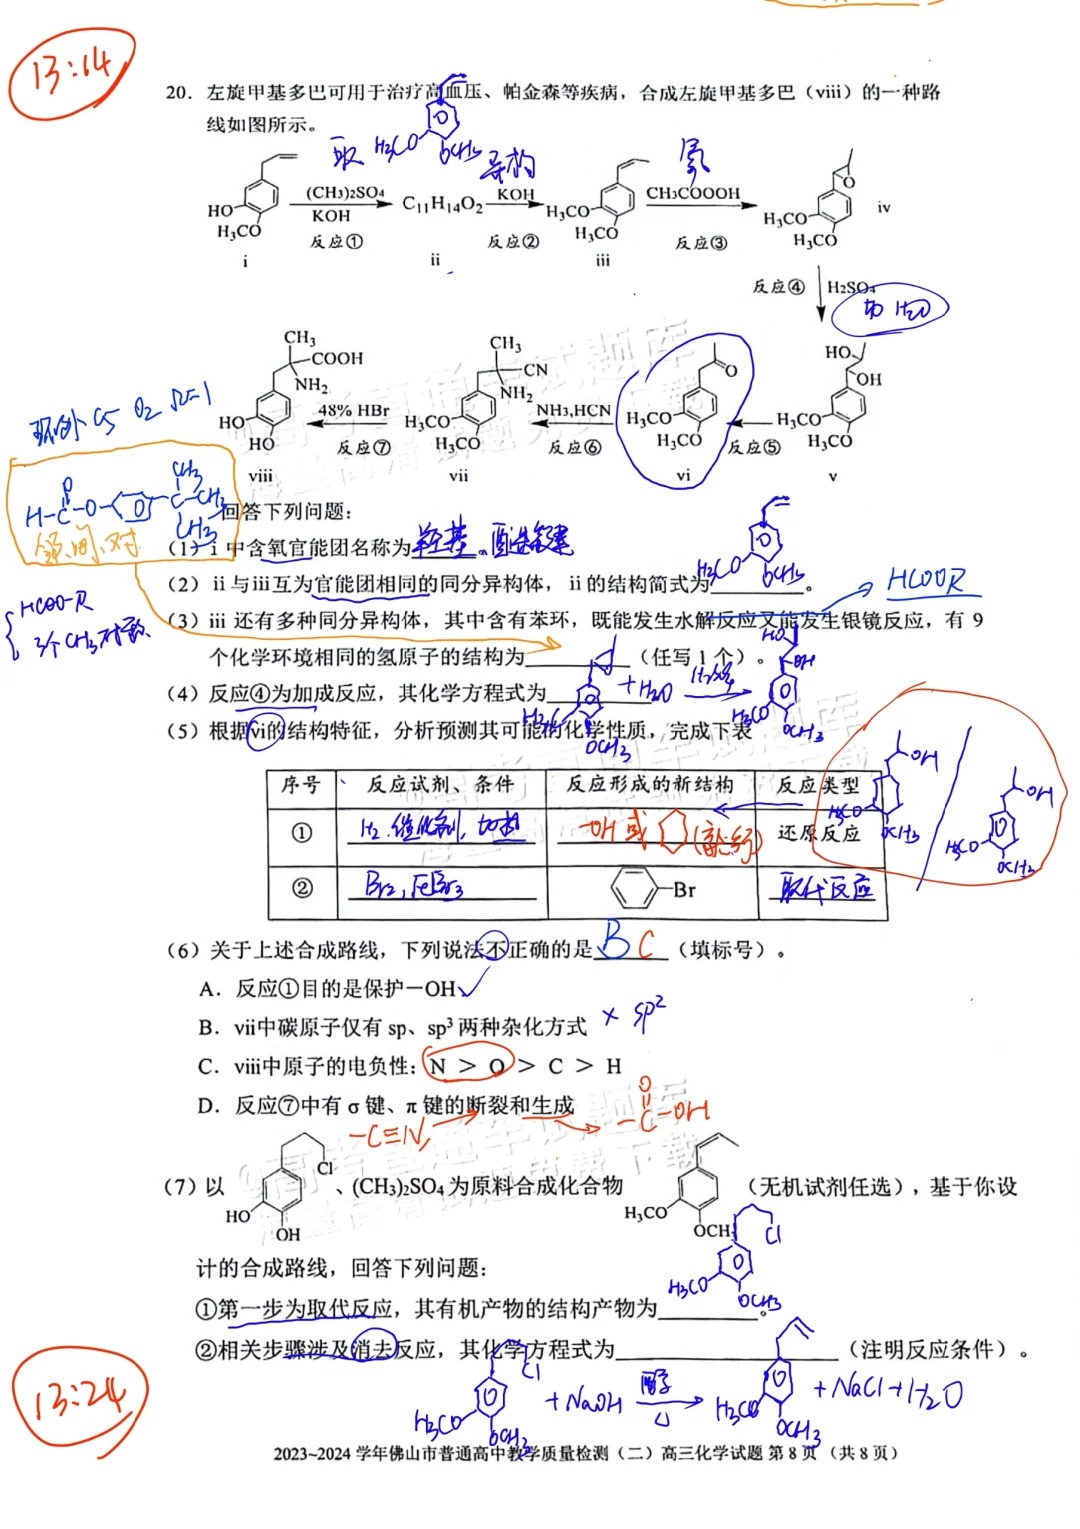 13:14
20. 左旋甲基多巴可用于治疗高血压、帕金森等疾病，合成左旋甲基多巴（viii）的一种路
线如图所示。
取 H₃CO OCH₃ 异构 氧
HO H₃CO (CH₃)₂SO₄ KOH 反应① C₁₁H₁₄O₂ KOH 反应② H₃CO H₃CO CH₃COOOH 反应③ O H₃CO H₃CO iv
i ii iii
反应④ H₂SO₄
加 H₂O
CH₃ COOH NH₂ HO HO 48% HBr 反应⑦ CH₃ CN NH₂ H₃CO H₃CO NH₃,HCN 反应⑥ O H₃CO H₃CO 反应⑤ HO OH H₃CO H₃CO
viii vii vi v
环外 C5 O2 Ω=1
H-C-O- O C-CH₃ CH₃ CH₃
回答下列问题：
（1）i 中含氧官能团名称为羟基、醚键
（2）ii 与iii互为官能团相同的同分异构体，ii 的结构简式为 H₃CO OCH₃ 。
HCOOR
HCOO-R
3个CH₃对称
（3）iii 还有多种同分异构体，其中含有苯环，既能发生水解反应又能发生银镜反应，有 9
个化学环境相同的氢原子的结构为 （任写 1 个）。
（4）反应④为加成反应，其化学方程式为 H₃CO OCH₃ +H₂O H₂SO₄ HO OH H₃CO OCH₃
（5）根据vi的结构特征，分析预测其可能的化学性质，完成下表
序号 反应试剂、条件 反应形成的新结构 反应类型
① H₂.催化剂，加热 -OH 或 还原反应
② Br₂，FeBr₃ Br 取代反应
OH H₃CO OCH₃ OH H₃CO OCH₃
（6）关于上述合成路线，下列说法不正确的是 B C （填标号）。
A．反应①目的是保护－OH
B．vii中碳原子仅有 sp、sp³ 两种杂化方式 × sp²
C．viii中原子的电负性：N > O > C > H
D．反应⑦中有 σ 键、π 键的断裂和生成
-C≡N, -C-OH O
（7）以 Cl HO OH 、(CH₃)₂SO₄ 为原料合成化合物 H₃CO OCH₃ （无机试剂任选），基于你设
计的合成路线，回答下列问题：
①第一步为取代反应，其有机产物的结构产物为 Cl H₃CO OCH₃ 。
②相关步骤涉及消去反应，其化学方程式为 （注明反应条件）。
Cl H₃CO OCH₃ +NaOH 醇 △ H₃CO OCH₃ +NaCl+H₂O
13:24
2023~2024 学年佛山市普通高中教学质量检测（二）高三化学试题 第 8 页 （共 8 页）